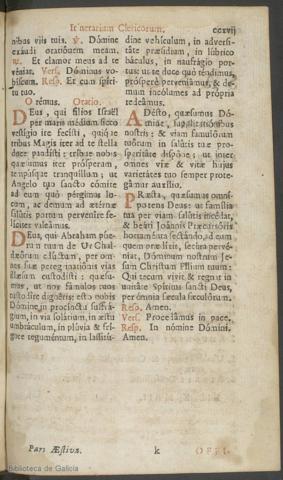 Itinerarium Clericorum. ccxvij
nibus viis tuis. ℣. Dómine
exáudi oratiónem meam.
℟. Et clamor meus ad te
véniat. Vers. Dóminus vo-
bíscum. Resp. Et cum spíri-
tu tuo.
Orémus. Oratio.
DEus, qui fílios Israël
per maris médium sicco
vestígio ire fecísti, quíque
tribus Magis iter ad te stella
duce pandísti; tríbue nobis
quǽsumus iter prósperum,
tempúsque tranquíllum, ut
Angelo tuo sancto cómite
ad eum quò pérgimus lo-
cum, ac demum ad ætérnæ
salútis portum perveníre fe-
líciter valeámus.
DEus, qui Abraham púe-
rum tuum de Ur Chal-
dæórum edúctum, per om-
nes suæ peregrinatiónis vias
illæsum custodísti: quǽsu-
mus, ut nos fámulos tuos
custodíre dignéris: esto nobis
Dómine in procínctu suffrá-
gium, in via solátium, in æstu
umbráculum, in plúvia & frí-
gore teguméntum, in lassitú-
dine vehículum, in adversi-
táte præsídium, in lúbrico
báculus, in naufrágio por-
tus: ut te duce quò téndimus,
próspere perveniámus, & de-
mum incólumes ad própria
redeámus.
ADésto, quǽsumus Dó-
mine, supplicatiónibus
nostris: & viam famulórum
tuórum in salútis tuæ pro-
speritáte dispóne; ut inter
omnes viæ & vitæ hujus
varietátes tuo semper prote-
gámur auxílio.
PRæsta, quǽsumus omní-
potens Deus: ut família
tua per viam salútis incédat,
& beáti Joánnis Præcursóris
hortaménta sectándo, ad eum
quem prædíxit, secúra pervé-
niat, Dóminum nostrum Je-
sum Christum Fílium tuum:
Qui tecum vivit & regnat in
unitáte Spíritus sancti Deus,
per ómnia sæcula sæculórum.
Resp. Amen.
Vers. Procedámus in pace.
Resp. In nómine Dómini.
Amen.
Pars Æstiva. k OFFI-
Biblioteca de Galicia